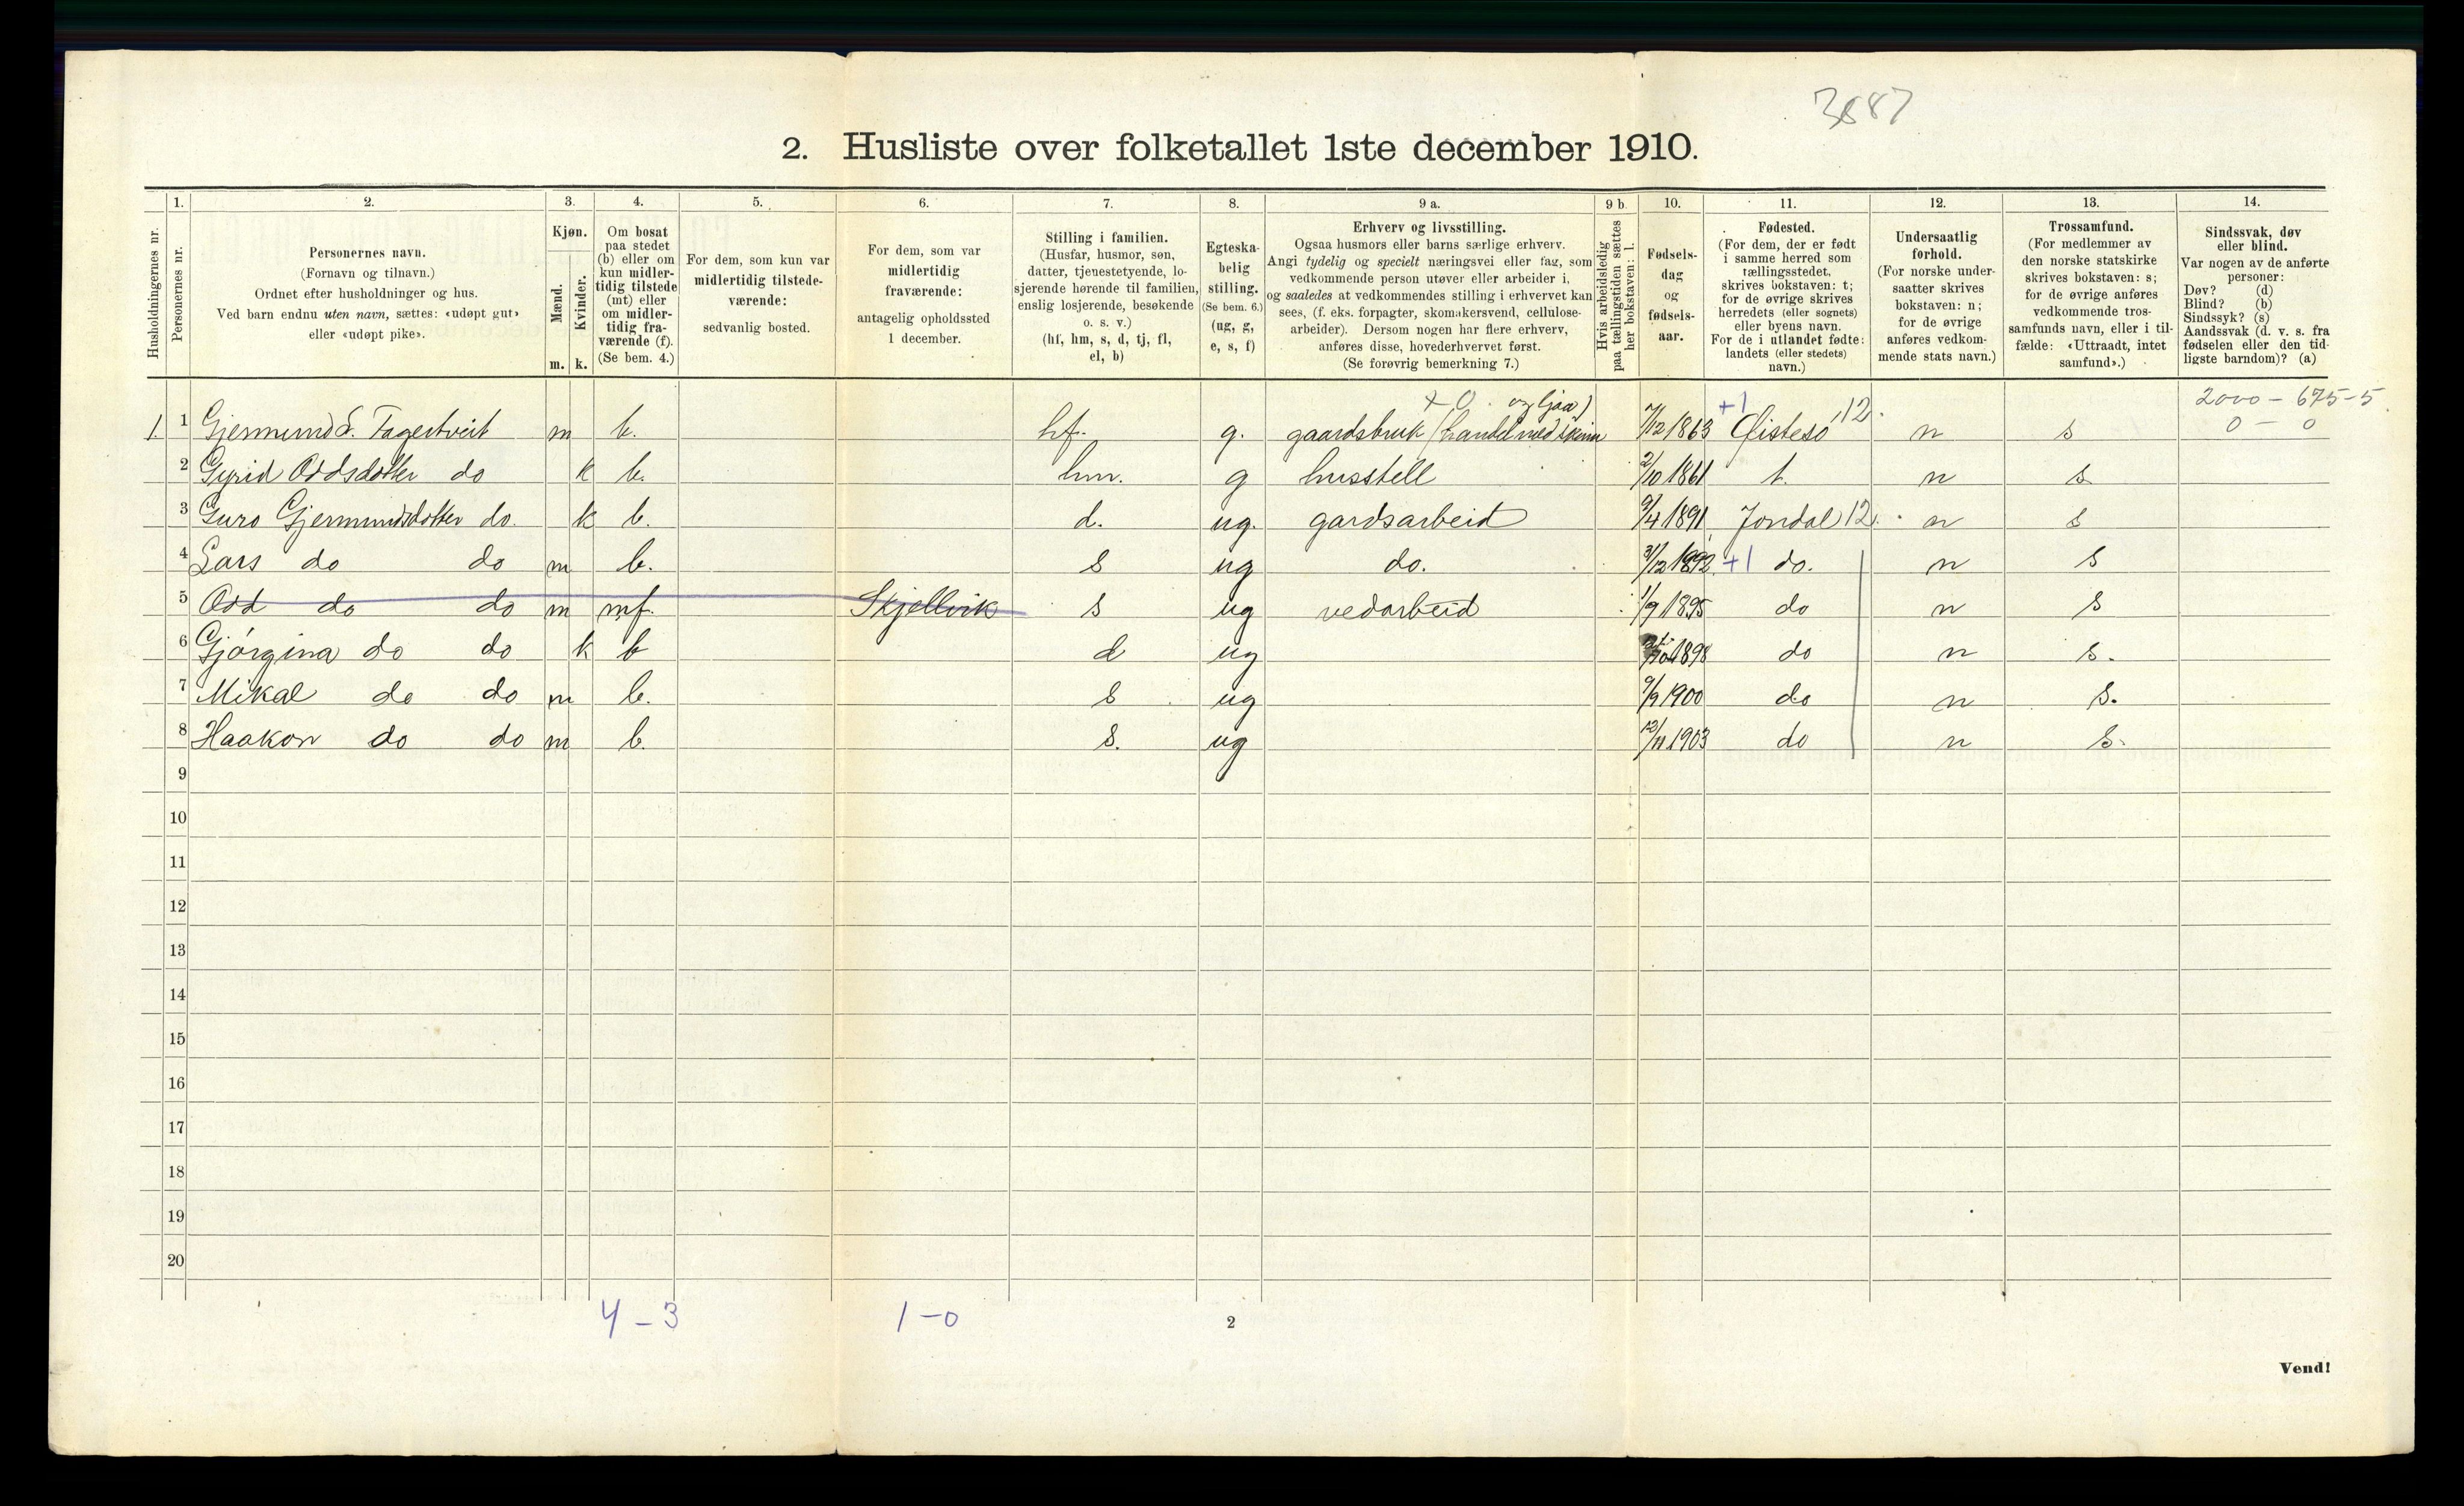 3887
2. Husliste over folketallet 1ste december 1910.
1. 2. 3. 4. 5. 6. 7. 8. 9 a. 9 b. 10. 11. 12. 13. 14.
Husholdningernes nr.
Personernes nr.
Personernes navn.
(Fornavn og tilnavn.)
Ordnet efter husholdninger og hus.
Ved barn endnu uten navn, sættes: «udøpt gut»
eller «udøpt pike».
Kjøn.
Mænd.
Kvinder.
m. k.
Om bosat
paa stedet
(b) eller om
kun midler-
tidig tilstede
(mt) eller
om midler-
tidig fra-
værende (f).
(Se bem. 4.)
For dem, som kun var
midlertidig tilstede-
værende:
sedvanlig bosted.
For dem, som var
midlertidig
fraværende:
antagelig opholdssted
1 december.
Stilling i familien.
(Husfar, husmor, søn,
datter, tjenestetyende, lo-
sjerende hørende til familien,
enslig losjerende, besøkende
o. s. v.)
(hf, hm, s, d, tj, fl,
el, b)
Egteska-
belig
stilling.
(Se bem. 6.)
(ug, g,
e, s, f)
Erhverv og livsstilling.
Ogsaa husmors eller barns særlige erhverv.
Angi tydelig og specielt næringsvei eller fag, som
vedkommende person utøver eller arbeider i,
og saaledes at vedkommendes stilling i erhvervet kan
sees, (f. eks. forpagter, skomakersvend, cellulose-
arbeider). Dersom nogen har flere erhverv,
anføres disse, hovederhvervet først.
(Se forøvrig bemerkning 7.)
Hvis arbeidsledig
paa tællingstiden sættes
her bokstaven: l.
Fødsels-
dag
og
fødsels-
aar.
Fødested.
(For dem, der er født
i samme herred som
tællingsstedet,
skrives bokstaven: t;
for de øvrige skrives
herredets (eller sognets)
eller byens navn.
For de i utlandet fødte:
landets (eller stedets)
navn.)
Undersaatlig
forhold.
(For norske under-
saatter skrives
bokstaven: n;
for de øvrige
anføres vedkom-
mende stats navn.)
Trossamfund.
(For medlemmer av
den norske statskirke
skrives bokstaven: s;
for de øvrige anføres
vedkommende tros-
samfunds navn, eller i til-
fælde: «Uttraadt, intet
samfund».)
Sindssvak, døv
eller blind.
Var nogen av de anførte
personer:
Døv? (d)
Blind? (b)
Sindssyk? (s)
Aandssvak (d. v. s. fra
fødselen eller den tid-
ligste barndom)? (a)
+0 og ljaa) +1 12. 2000 - 675-5
1. 1 Gjermund S. Fagertveit m b. hf. g. gaardsbruk (handel med skinn 7/12 1863 Østesø n s 0 - 0
2 Gyrid Oddsdotter do k b. hm. g husstell 2/10 1861 t. n s
3 Guro Gjermundsdotter do. k b. d. ug. gardsarbeid 9/4 1891 Jondal 12. n s
4 Lars do do m b. s ug do. 31/12 1892. +1 do. n s
5 Odd do do m mf. Skjellvik s ug vedarbeid 1/9 1895 do n s
6 Gjørgina do do k b d ug 1898 do n s.
7 Mikal do do m b. s ug 9/9 1900 do n s.
8 Haakon do do m b. s. ug 12/11 1903 do n s.
9
10
11
12
13
14
15
16
17
18
19
20
4 - 3 1 - 0
2
Vend!